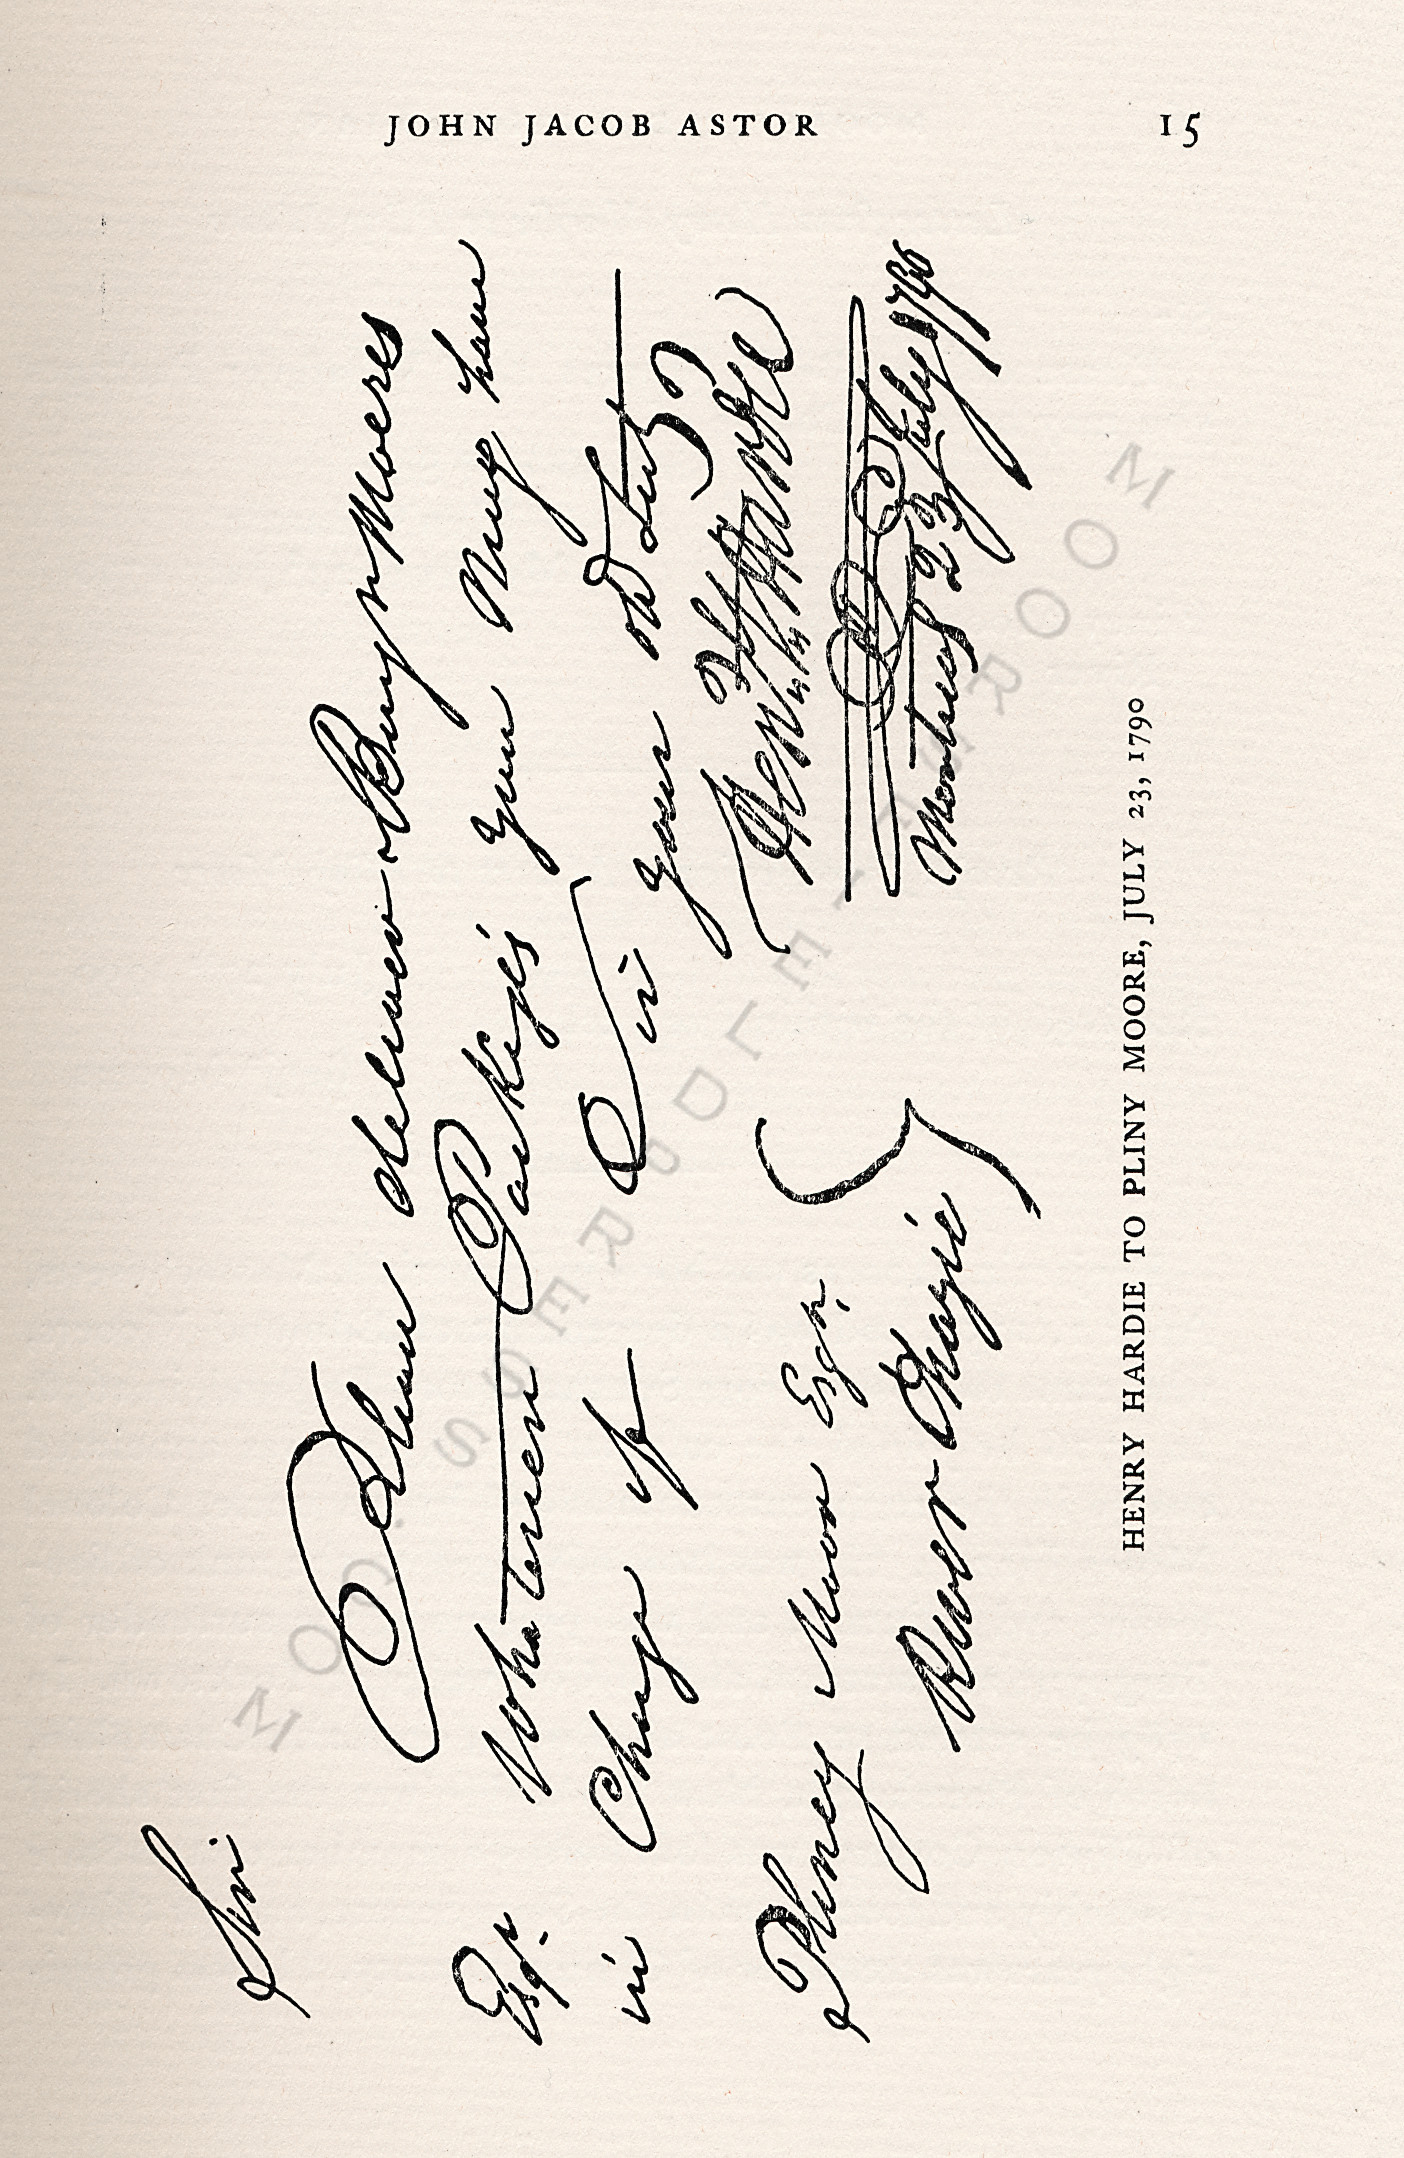 JOHN JACOB ASTOR 15
Sir
Please deliver Benjn Moeers
Esqr. Whatever Packeges you may have
in Charge of Sir your obdt
Henry Hardie
Montreal 23 July 1790
Pliney Moor Esqr.
River Chazie
HENRY HARDIE TO PLINY MOORE, JULY 23, 1790
M O C . S S E R P D L E I F R O O M